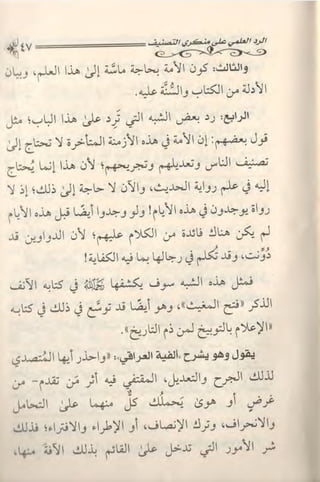 الرد العلمي على منكري التصنيف
٤٧
والثالث: كون الأمة بحاجة ماسَّة إلى هذا العلم، وبيان
الأدلة من الكتاب والسُّنة عليه.
الرابع: رد بعض الشبه التي تَرِد على هذا الباب؛ مثل
قول بعضهم: إن الأمة في هذه الأزمنة المتأخرة لا تحتاج إلى
تصنيف الناس وتعديلهم وتجريحهم؛ لأن هذا إنما يُحتاج
إليه في علم رواية الحديث، والآن لا حاجة إلى ذلك؛ إذ لا
رواة يوجدون في هذه الأيام! ولو وجدوا أيضًا قبل هذه الأيام
لم يكن هناك فائدة من الكلام عليهم؛ لأن الدواوين قد
دُوِّنت، وقد تُكلم في رجالها بما فيه الكفاية!
فمثل هذه الشبه سوف يكشفها في كتابه الآنف
الذكر «فتح المغيث»، وهو أيضًا قد توسَّع في ذلك في كتابه
«الإعلام بالتوبيخ لمن ذم التاريخ».
يقول وهو يشرح «ألفية العراقي»: «واحذر أيها المُتصدي
لذلك الجرح والتعديل، المقتفي فيه أثر مَن تقدم- من
غرضٍ أو هوىً يَحملُك كلٌّ منهما على التحامل
والانحراف، وترك الإنصاف، أو الإطراء والافتراء؛ فذلك
شر الأمور التي تدخل على القائم بذلك الآفة منها،